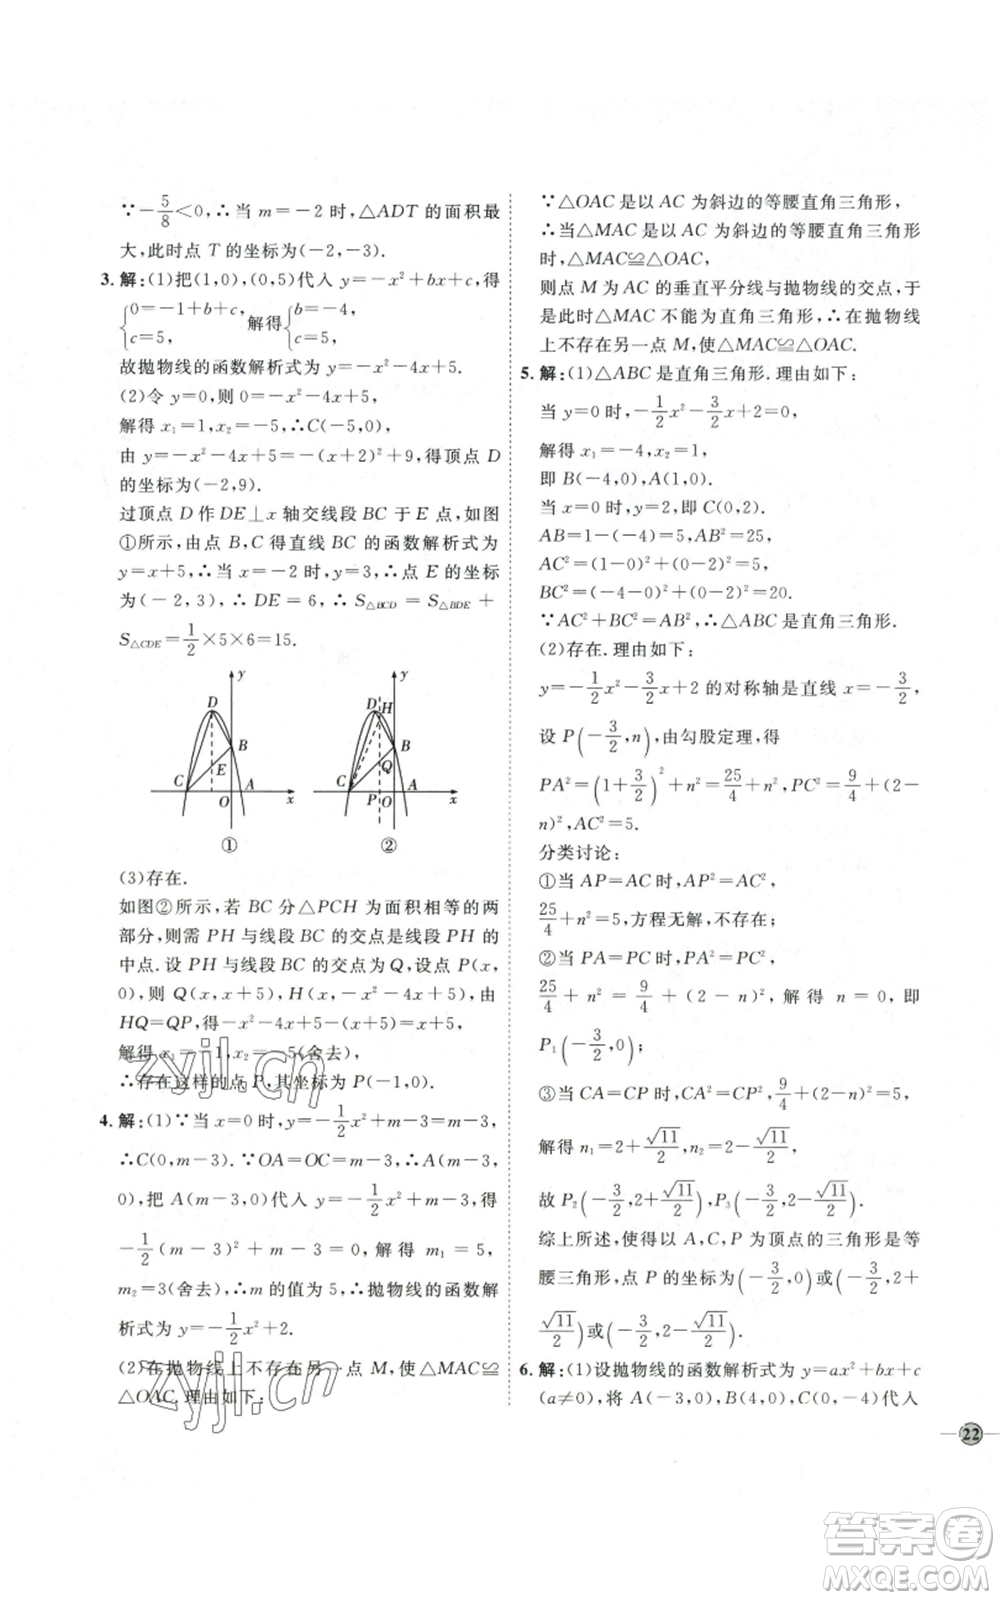 ∵−5/8<0,∴当 m=−2 时,△ADT 的面积最
大,此时点 T 的坐标为(−2,−3).
3. 解:(1)把(1,0),(0,5)代入 y=−x²+bx+c,得
{0=−1+b+c, c=5, 解得{b=−4, c=5,
故抛物线的函数解析式为 y=−x²−4x+5.
(2)令 y=0,则−x²−4x+5=0,
解得 x₁=1,x₂=−5,∴C(−5,0),
由 y=−x²−4x+5=−(x+2)²+9,得顶点 D
的坐标为(−2,9).
过顶点 D 作 DE⊥x 轴交线段 BC 于 E 点,如图
①所示,由点 B,C 得直线 BC 的函数解析式为
y=x+5,∴当 x=−2 时,y=3,∴点 E 的坐标
为(−2,3),∴DE=6,∴S△BCD=S△BDE+
S△CDE=1/2×5×6=15.
y D B E C A O x ①
y D H B Q C A P O x ②
(3)存在.
如图②所示,若 BC 分△PCH 为面积相等的两
部分,则需 PH 与线段 BC 的交点是线段 PH 的
中点.设 PH 与线段 BC 的交点为 Q,设点 P(x,
0),则 Q(x,x+5),H(x,−x²−4x+5),由
HQ=QP,得−x²−4x+5−(x+5)=x+5,
解得 x₁=−1,x₂=−5(舍去),
∴存在这样的点 P,其坐标为 P(−1,0).
4. 解:(1)∵当 x=0 时,y=−1/2x²+m−3=m−3,
∴C(0,m−3).∵OA=OC=m−3,∴A(m−3,
0),把 A(m−3,0)代入 y=−1/2x²+m−3,得
−1/2(m−3)²+m−3=0,解得 m₁=5,
m₂=3(舍去),∴m 的值为 5,∴抛物线的函数解
析式为 y=−1/2x²+2.
(2)在抛物线上不存在另一点 M,使△MAC≌
△OAC.理由如下:
∵△OAC 是以 AC 为斜边的等腰直角三角形,
∴当△MAC 是以 AC 为斜边的等腰直角三角形
时,△MAC≌△OAC,
则点 M 为 AC 的垂直平分线与抛物线的交点,于
是此时△MAC 不能为直角三角形,∴在抛物线
上不存在另一点 M,使△MAC≌△OAC.
5. 解:(1)△ABC 是直角三角形.理由如下:
当 y=0 时,−1/2x²−3/2x+2=0,
解得 x₁=−4,x₂=1,
即 B(−4,0),A(1,0).
当 x=0 时,y=2,即 C(0,2).
AB=1−(−4)=5,AB²=25,
AC²=(1−0)²+(0−2)²=5,
BC²=(−4−0)²+(0−2)²=20.
∵AC²+BC²=AB²,∴△ABC 是直角三角形.
(2)存在.理由如下:
y=−1/2x²−3/2x+2 的对称轴是直线 x=−3/2,
设 P(−3/2,n),由勾股定理,得
PA²=(1+3/2)²+n²=25/4+n²,PC²=9/4+(2−
n)²,AC²=5.
分类讨论:
①当 AP=AC 时,AP²=AC²,
25/4+n²=5,方程无解,不存在;
②当 PA=PC 时,PA²=PC²,
25/4+n²=9/4+(2−n)²,解得 n=0,即
P₁(−3/2,0);
③当 CA=CP 时,CA²=CP²,9/4+(2−n)²=5,
解得 n₁=2+√11/2,n₂=2−√11/2,
故 P₂(−3/2,2+√11/2),P₃(−3/2,2−√11/2).
综上所述,使以 A,C,P 为顶点的三角形是等
腰三角形,点 P 的坐标为(−3/2,0)或(−3/2,2+
√11/2)或(−3/2,2−√11/2).
6. 解:(1)设抛物线的函数解析式为 y=ax²+bx+c
(a≠0),将 A(−3,0),B(4,0),C(0,−4)代入
22
zyjl.cn
zyjl.cn
答案卷
MXQE.COM